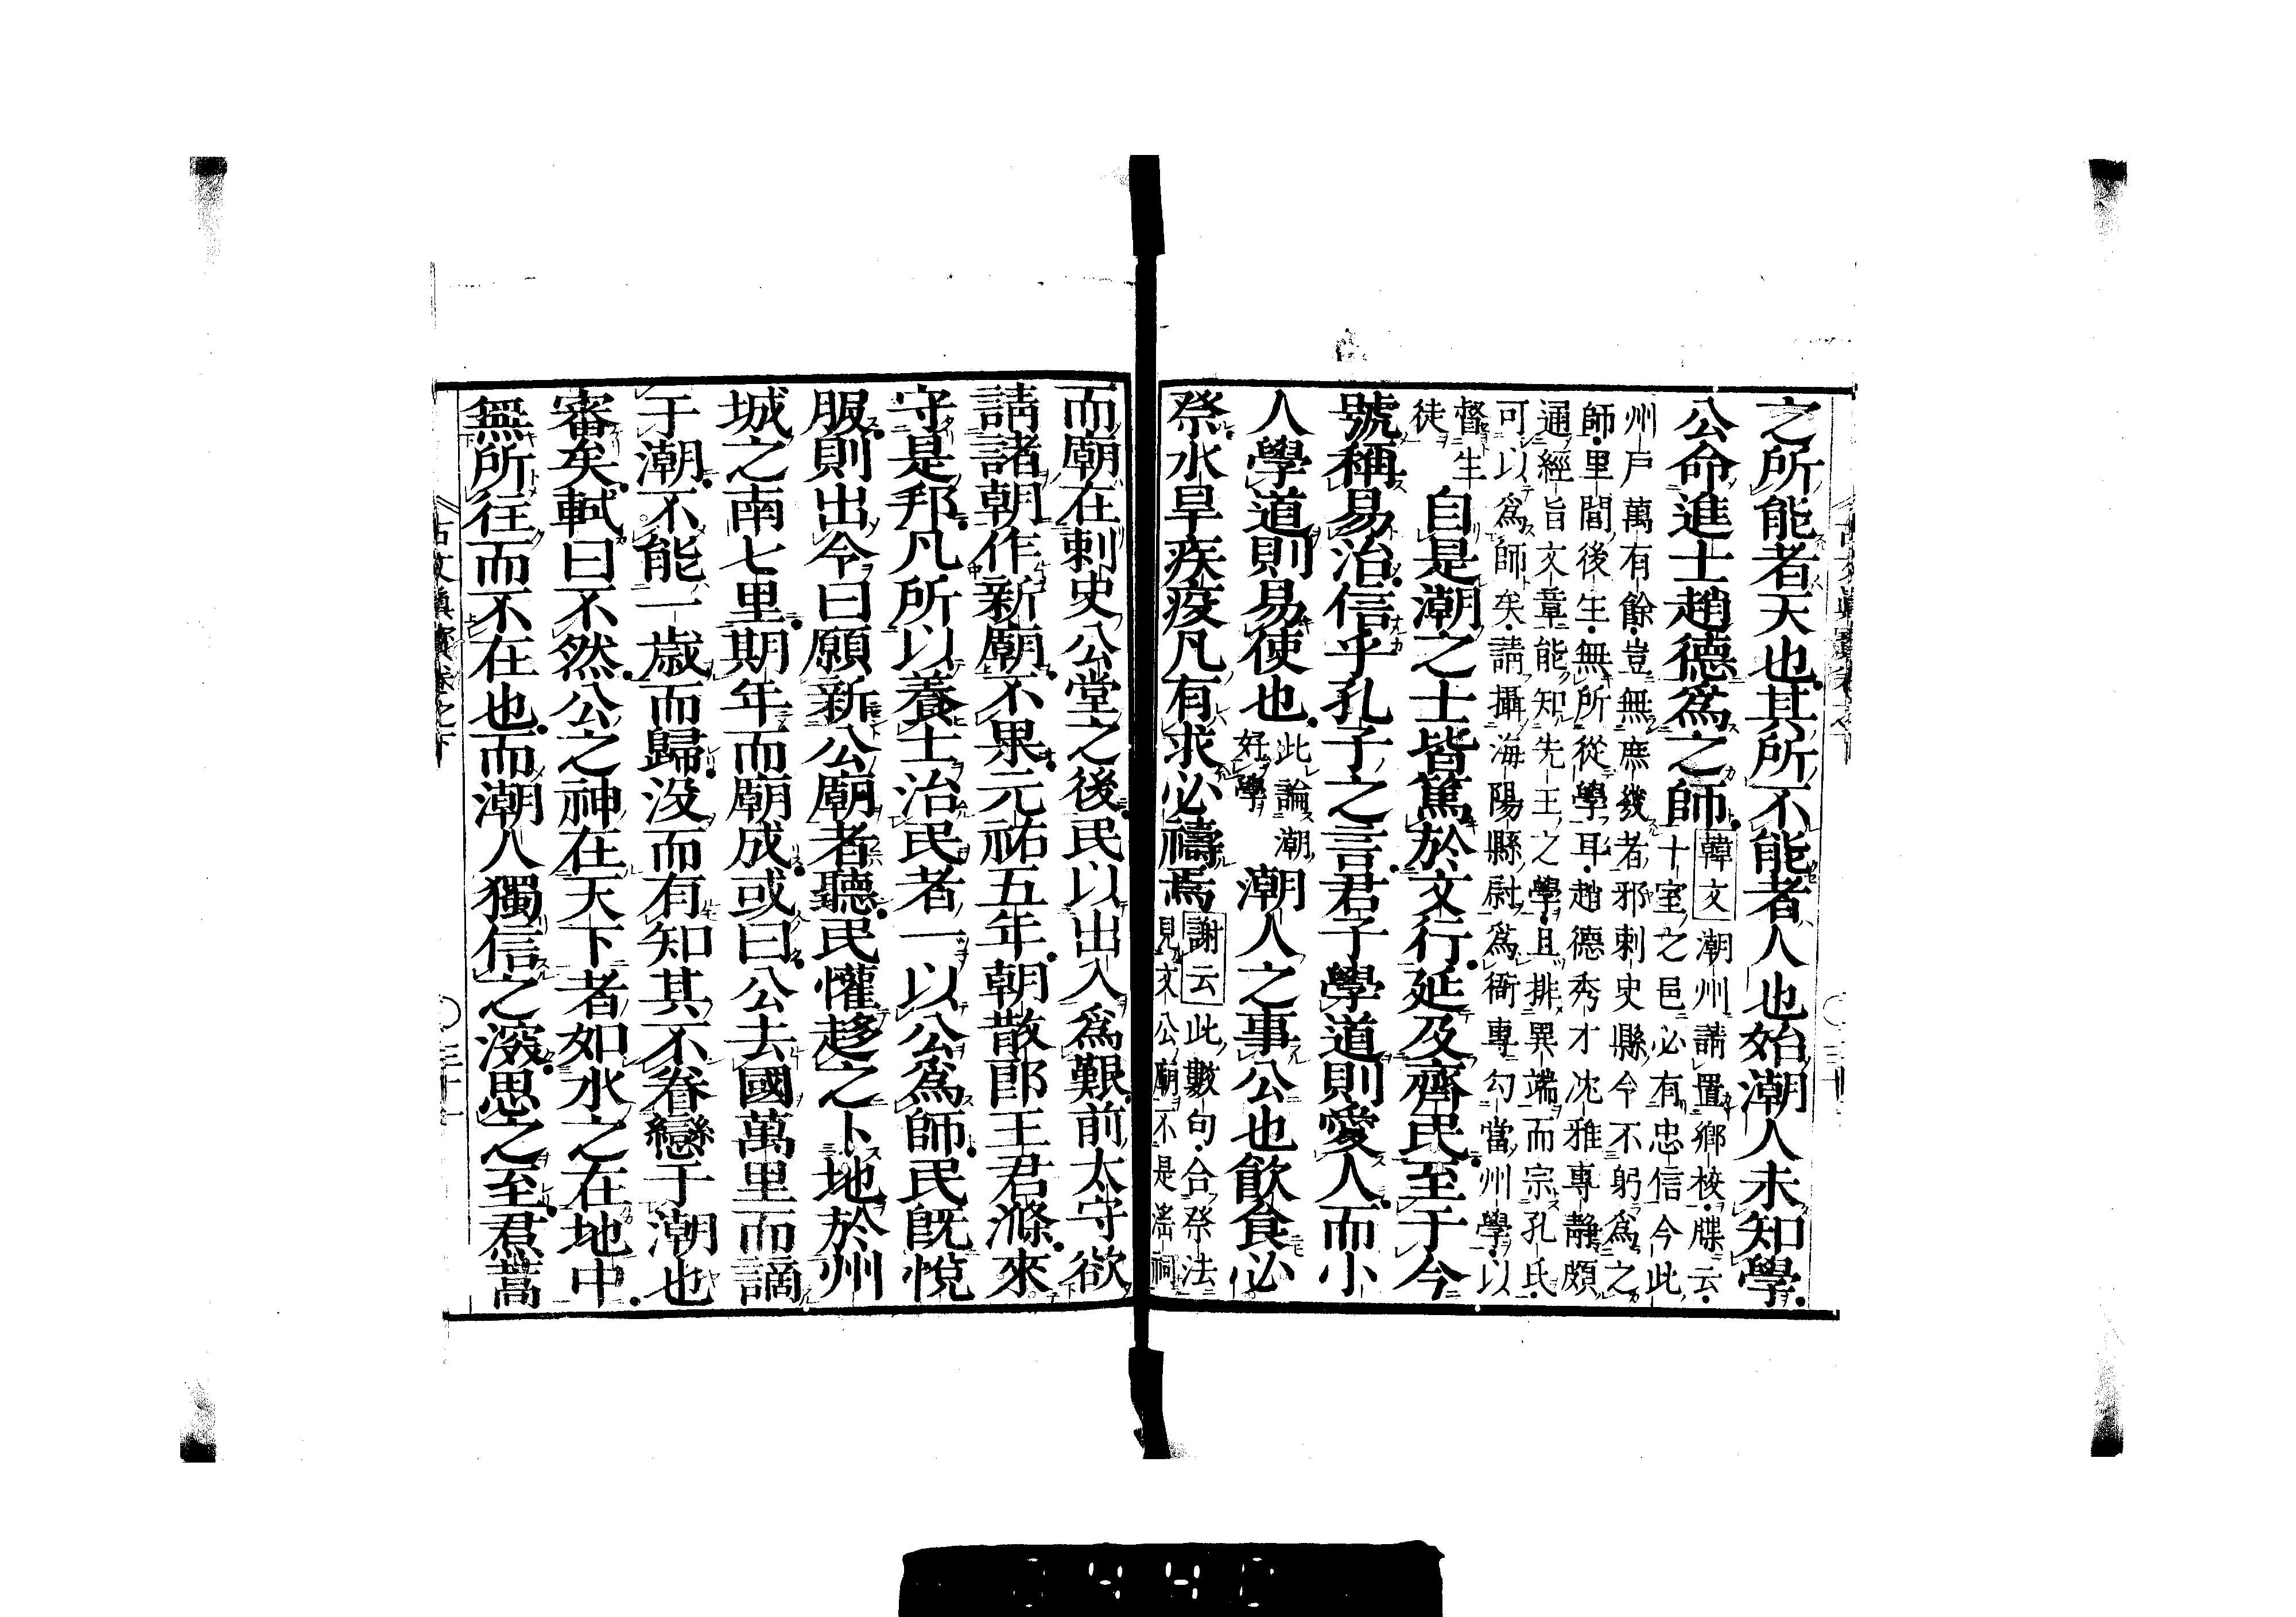 之所能者天也其所不能者人也始潮人未知學
公命進士趙德爲之師
韓文潮州請置鄉校牒云
十室之邑必有忠信今此
州戶萬有餘豈無庶幾者邪刺史縣令不躬爲之
師里閭後生無所從學耳趙德秀才沈雅專靜頗
通經旨文章能知先王之學且排異端而宗孔氏
可以爲師矣請攝海陽縣尉爲衙專勾當州學以
督生
徒
自是潮之士皆篤於文行延及齊民至于今
號稱易治信乎孔子之言君子學道則愛人而小
人學道則易使也
此論潮
好學
潮人之事公也飮食必
祭水旱疾疫凡有求必禱焉
謝云此數句合祭法
見文公廟不是滛祠
而廟在刺史公堂之後民以出入爲艱前太守欲
請諸朝作新廟不果元祐五年朝散郎王君滌來
守是邦凡所以養士治民者一以公爲師民既悅
服則出令曰願新公廟者聽民懽趍之卜地於州
城之南七里期年而廟成或曰公去國萬里而謫
于潮不能一歳而歸沒而有知其不眷戀于潮也
審矣軾曰不然公之神在天下者如水之在地中
無所往而不在也而潮人獨信之深思之至君蒿
古文眞寳卷之下